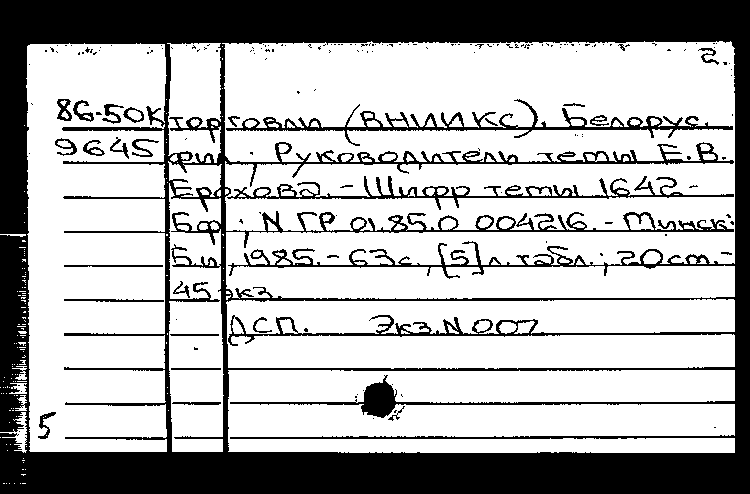 2.
86-50К торговли (ВНИИКС). Белорус.
9645 фил ; Руководитель темы Е.В.
Ерохова. - Шифр темы 1642-
Бф ; N ГР 01.85.0 004216. - Минск:
Б.и., 1985. - 63 с., [5] л. табл. ; 20 cm. -
45 экз.
ДСП. Экз. N 007
5